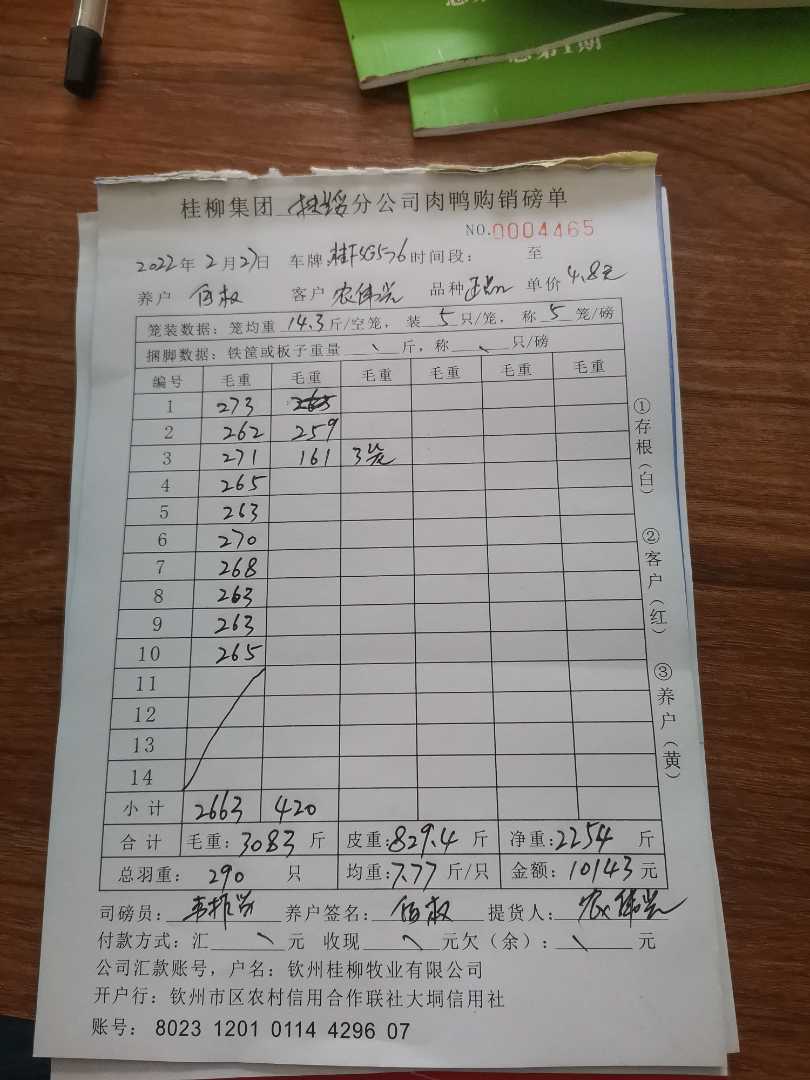 总第1期
桂柳集团 分公司肉鸭购销磅单
NO.0004465
2022年2月27日 车牌:桂F5G576 时间段: 至
养户 伍权 客户 农伟兴 品种 单价 4.8元
笼装数据:笼均重 14.3 斤/空笼,装 5 只/笼,称 5 笼/磅
捆脚数据:铁筐或板子重量 \ 斤,称 \ 只/磅
编号 毛重 毛重 毛重 毛重 毛重 毛重
1 273 265
2 262 259
3 271 161 3笼
4 265
5 263
6 270
7 268
8 263
9 263
10 265
11
12
13
14
小计 2663 420
合计 毛重:3083 斤 皮重:829.4 斤 净重:2254 斤
总羽重: 290 只 均重:7.77 斤/只 金额:10143 元
司磅员: 养户签名: 伍权 提货人: 农伟兴
付款方式:汇 \ 元 收现 \ 元欠(余): \ 元
公司汇款账号,户名:钦州桂柳牧业有限公司
开户行:钦州市区农村信用合作联社大垌信用社
账号: 8023 1201 0114 4296 07
①存根(白)
②客户(红)
③养户(黄)